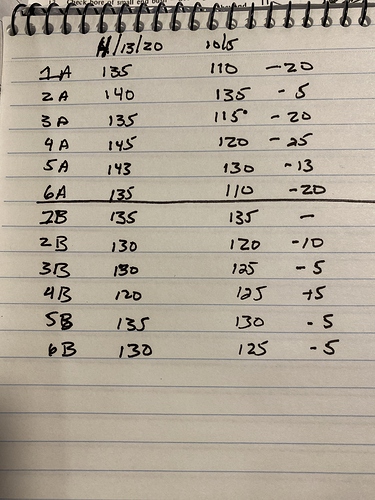 Check bore of small end bush
/13/20 10/5
1A 135 110 -20
2A 140 135 -5
3A 135 115 -20
4A 145 120 -25
5A 143 130 -13
6A 135 110 -20
1B 135 135 —
2B 130 120 -10
3B 130 125 -5
4B 120 125 +5
5B 135 130 -5
6B 130 125 -5